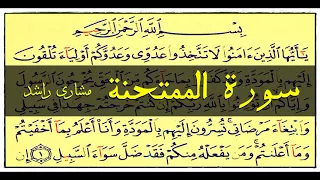 بِسْمِ اللَّهِ الرَّحْمَٰنِ الرَّحِيمِ
يَا أَيُّهَا الَّذِينَ آمَنُوا لَا تَتَّخِذُوا عَدُوِّي وَعَدُوَّكُمْ أَوْلِيَاءَ تُلْقُونَ
إِلَيْهِم بِالْمَوَدَّةِ
سورة الممتحنة
مشارى راشد
وَابْتِغَاءَ مَرْضَاتِي تُسِرُّونَ إِلَيْهِم بِالْمَوَدَّةِ وَأَنَا أَعْلَمُ بِمَا أَخْفَيْتُمْ
وَمَا أَعْلَنتُمْ وَمَن يَفْعَلْهُ مِنكُمْ فَقَدْ ضَلَّ سَوَاءَ السَّبِيلِ ١ إِن